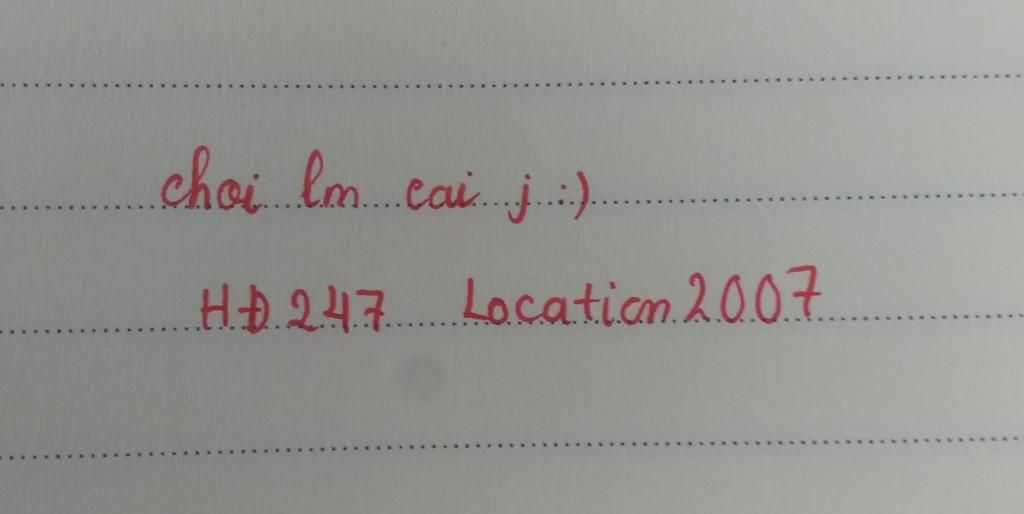 choi lm cai j :)
HĐ 247 Location 2007